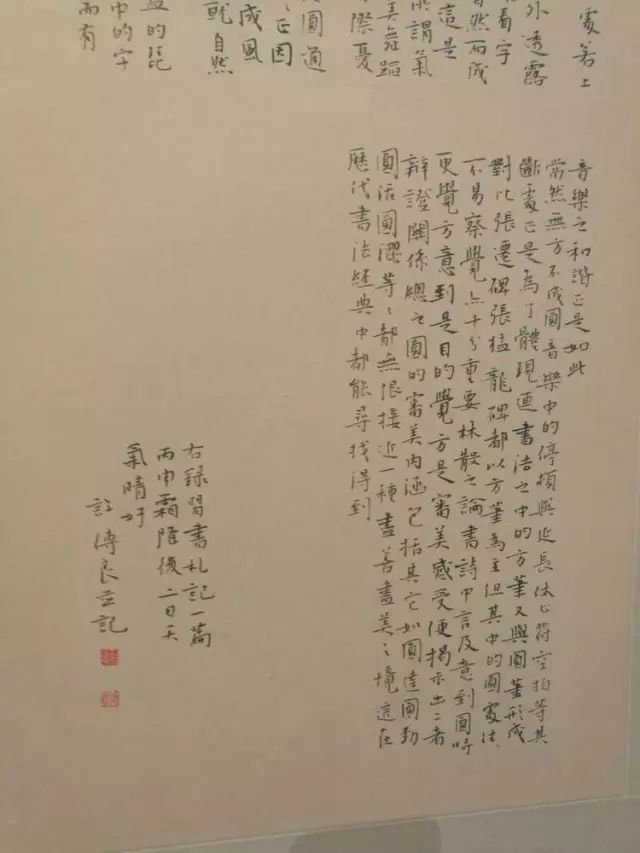 處若上
外透露
看字
自然而成
這是
謂氣
美舞蹈
際憂
圓通
正因
成風
就自然
的琵
中的字
而有
音樂之和諧正是如此
當然無方不成圓音樂中的停頓與延長休止符空拍等其
斷處正是為了體現連書法之中的方筆又與圓筆形成
對比張遷碑張猛龍碑都以方筆為主但其中的圓處往
不易察覺亦十分重要林散之論書詩中言及意到圓時
更覺方意到是目的覺方是審美感受便揭示出二者
辯證關係總之圓的審美內涵包括其它如圓達圓勁
圓活圓潤等〻都無限接近一種盡善盡美之境這在
歷代書法經典中都能尋找得到
右錄習書札記一篇
丙申霜降後二日天
氣晴好
許傳良並記